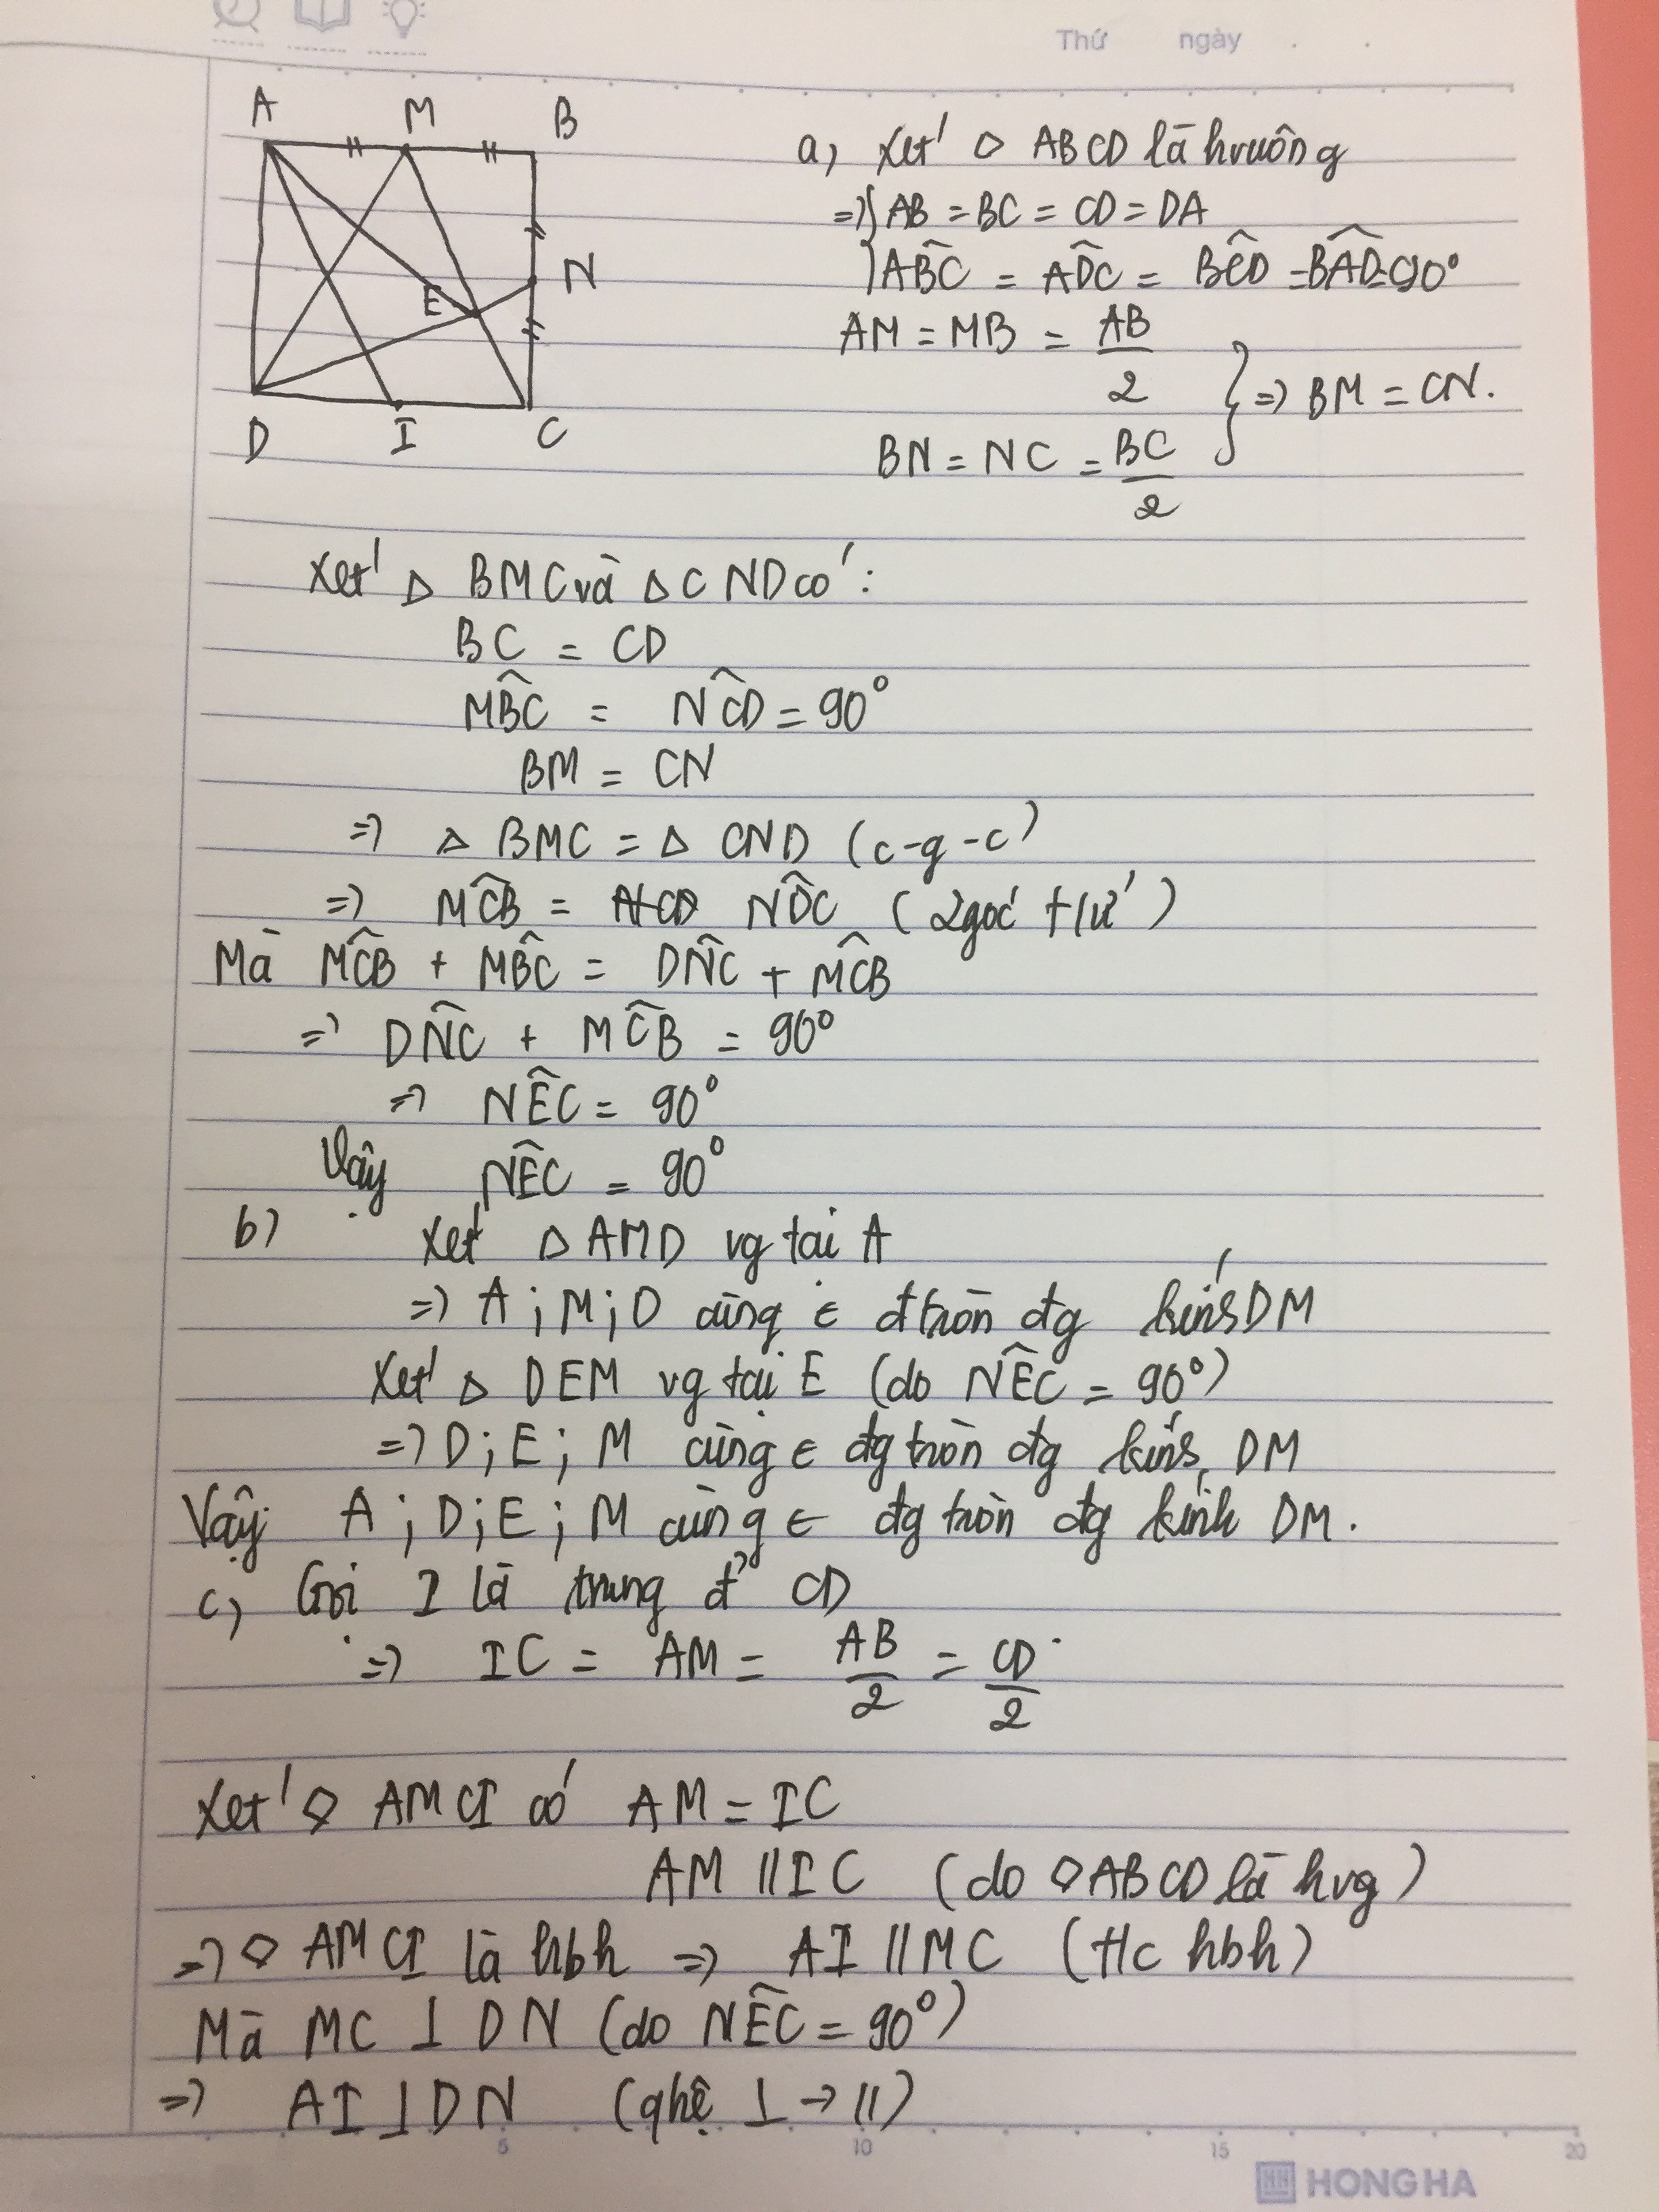 Thứ ngày
A M B
N
E
D I C
a, Xét ◇ ABCD là hvuông
=> { AB = BC = CD = DA
ABC^ = ADC^ = BCD^ = BAD^ = 90°
AM = MB = AB/2
BN = NC = BC/2 } => BM = CN.
Xét △ BMC và △ CND có:
BC = CD
MBC^ = NCD^ = 90°
BM = CN
=> △ BMC = △ CND (c-g-c)
=> MCB^ = NDC^ (2góc t/ứ)
Mà MCB^ + MBC^ = DNC^ + MCB^
=> DNC^ + MCB^ = 90°
=> NEC^ = 90°
Vậy NEC^ = 90°
b) Xét △ AMD vg tại A
=> A; M; D cùng ∈ đtròn đg kính DM
Xét △ DEM vg tại E (do NEC^ = 90°)
=> D; E; M cùng ∈ đg tròn đg kính DM
Vậy A; D; E; M cùng ∈ đg tròn đg kính DM.
c, Gọi I là trung đ' CD
=> IC = AM = AB/2 = CD/2
Xét ◇ AMCI có AM = IC
AM // IC (do ◇ ABCD là hvg)
=> ◇ AMCI là hbh => AI // MC (t/c hbh)
Mà MC ⊥ DN (do NEC^ = 90°)
=> AI ⊥ DN (qhệ ⊥ → //)
5 10 15 20
HONG HA